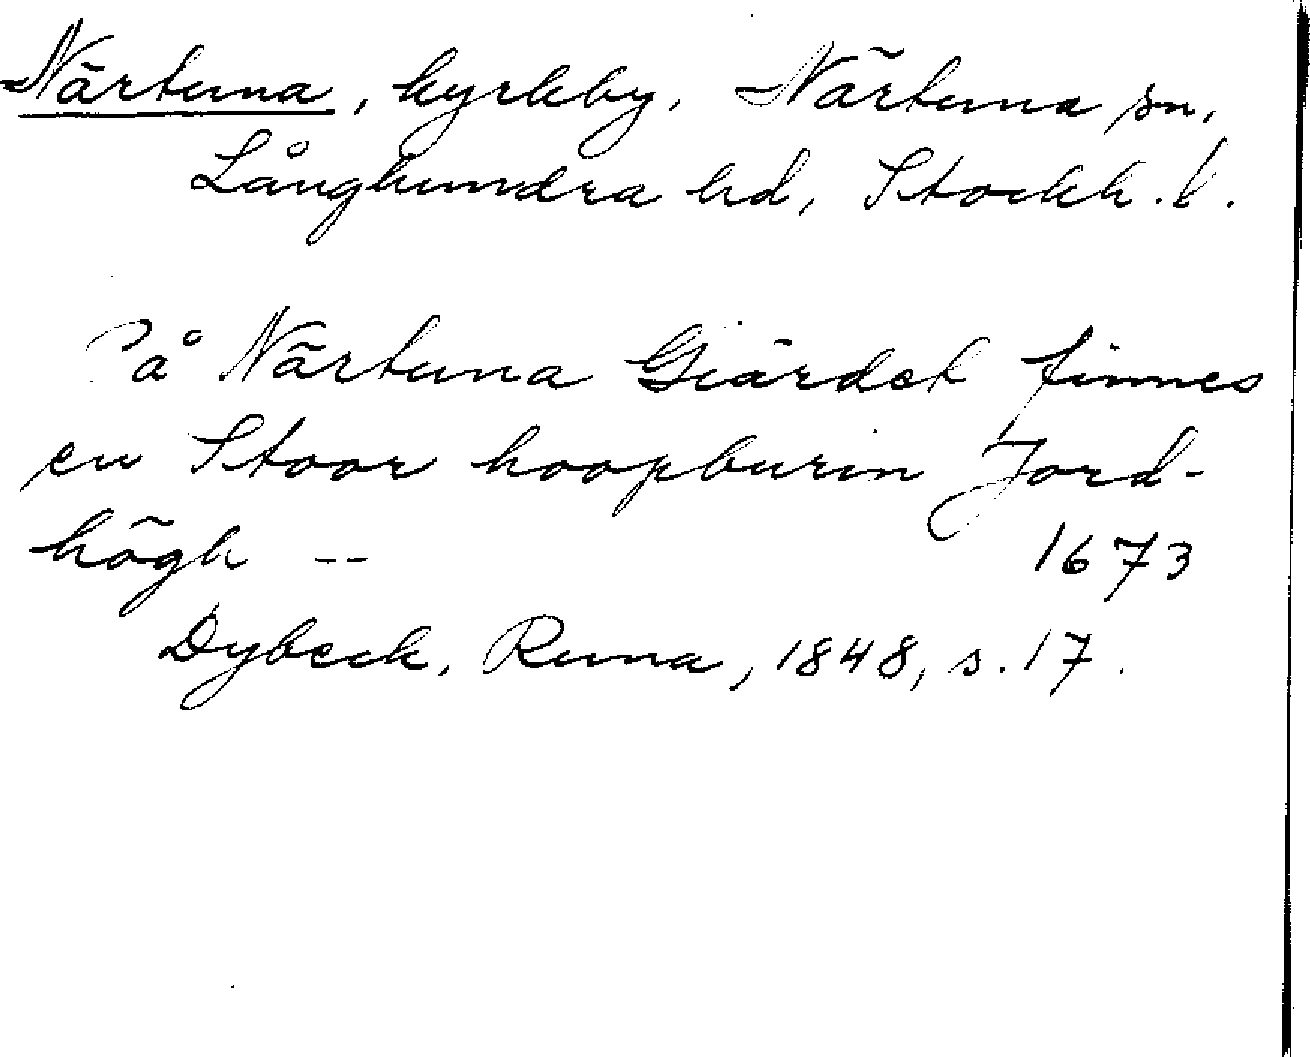 Närtuna, kyrkby, Närtuna sn,
Långhundra hd, Stockh. l.
På Närtuna Giärdet finnes
en Stoor hoopburin Jord-
högh --
1673
Dybeck, Runa, 1848, s. 17.